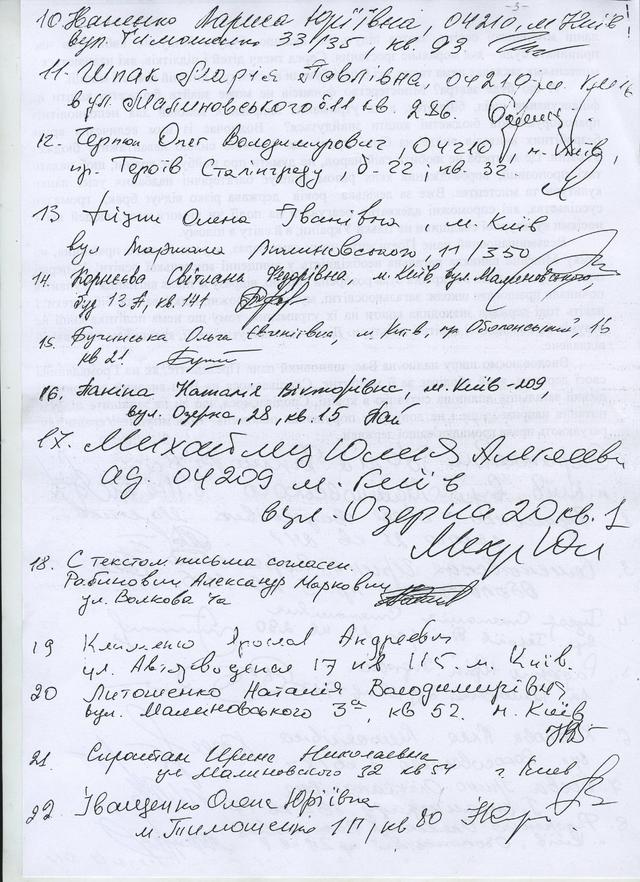 -3-
10 Наненко Лариса Юріївна, 04210, м Київ
вул. Тимошенко 33/35, кв. 93
11. Шпак Марія Павлівна, 04210 м. Київ
вул. Малиновського б.11 кв. 286.
12. Черпак Олег Володимирович, 04210, м. Київ,
пр. Героїв Сталинграду, б. 22, кв. 32
13 Олена Іванівна, м. Київ
вул Маршала Малиновського, 11/350
14. Корнєєва Світлана Федорівна, м. Київ, вул. Малиновського,
буд 13А, кв. 141
15. Бучинська Ольга Євгенівна м. Київ, пр Оболонський, 16
кв 21
16. Паніна Наталія Вікторівна, м. Київ-209,
вул. Озерна, 28, кв. 15
17. Михайлец Юлия Алексеевн
ад. 04209 м. Київ
вул. Озерна 20 кв. 1
18. С текстом письма согласен.
Рабинович Александр Маркович
ул. Волкова
19 Клименко Ярослав Андреевич
ул. Автозаводская 17 кв 115. м. Київ.
20 Литошенко Наталія Володимирівна
вул. Малиновського 3а, кв 52. м. Київ
21. Ирина Николаевна
ул Малиновского 32 кв 54 г. Киев
22. Іващенко Олена Юріївна
м. Тимошенко 1П, кв 80